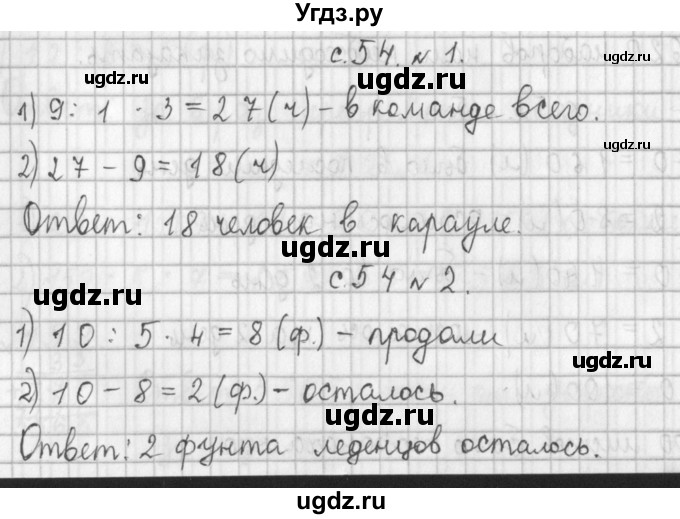 Угдз.ру
с.54. № 1.
1) 9 : 1 · 3 = 27 (ч) – в команде всего.
2) 27 – 9 = 18 (ч)
Ответ: 18 человек в карауле.
с.54 № 2.
1) 10 : 5 · 4 = 8 (ф.) – продали
2) 10 – 8 = 2 (ф.) – осталось.
Ответ: 2 фунта леденцов осталось.
ugdz.ru
ugdz.ru
ugdz.ru
ugdz.ru
ugdz.ru
ugdz.ru
ugdz.ru
ugdz.ru
ugdz.ru
ugdz.ru
ugdz.ru